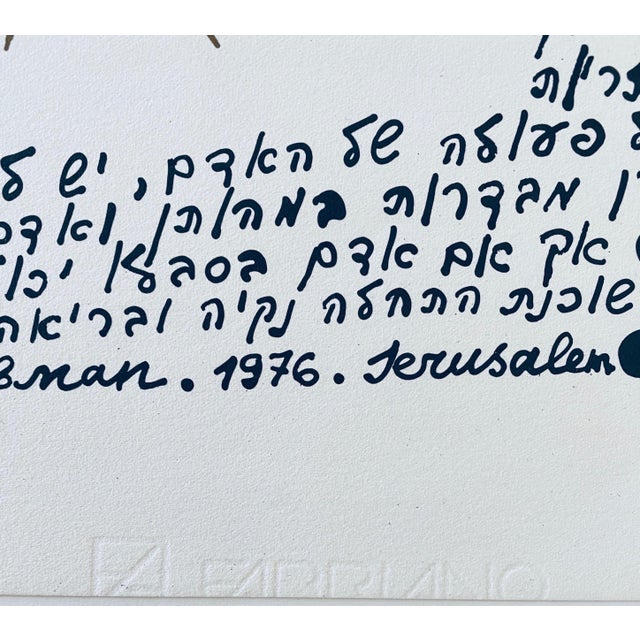 זרות
פעולה של האדם, יש
מבדרות במהותן
אך אם אדם בסבעו
שוכנת התחלה נקיה ובריאה
man . 1976 . Jerusalem
FABRIANO